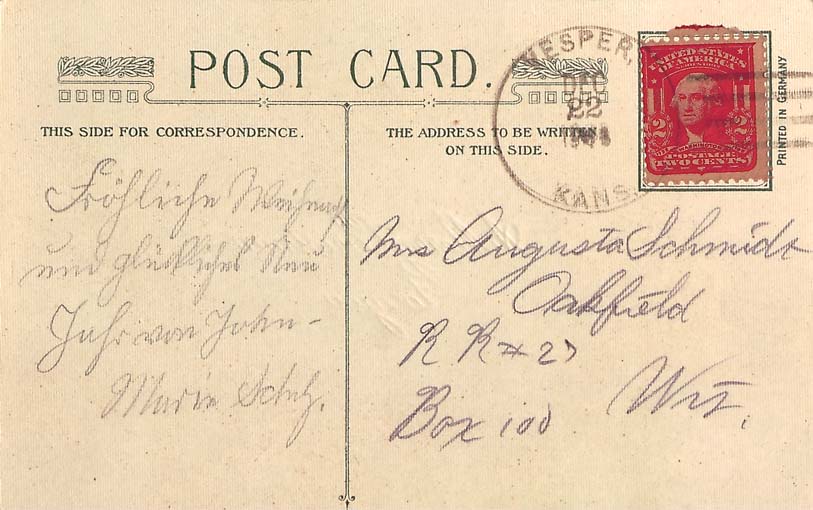 POST CARD.
THIS SIDE FOR CORRESPONDENCE.
Fröhliche Weihnacht
und glückliches Neu
Jahr von John –
Marie
THE ADDRESS TO BE WRITTEN
ON THIS SIDE.
Mrs Augusta Schmidt
Oakfield
R R # 27
Box 100 Wis.
VESPER,
DEC
22
KANS.
UNITED STATES
OF AMERICA
2 2
WASHINGTON
POSTAGE
TWO CENTS
PRINTED IN GERMANY